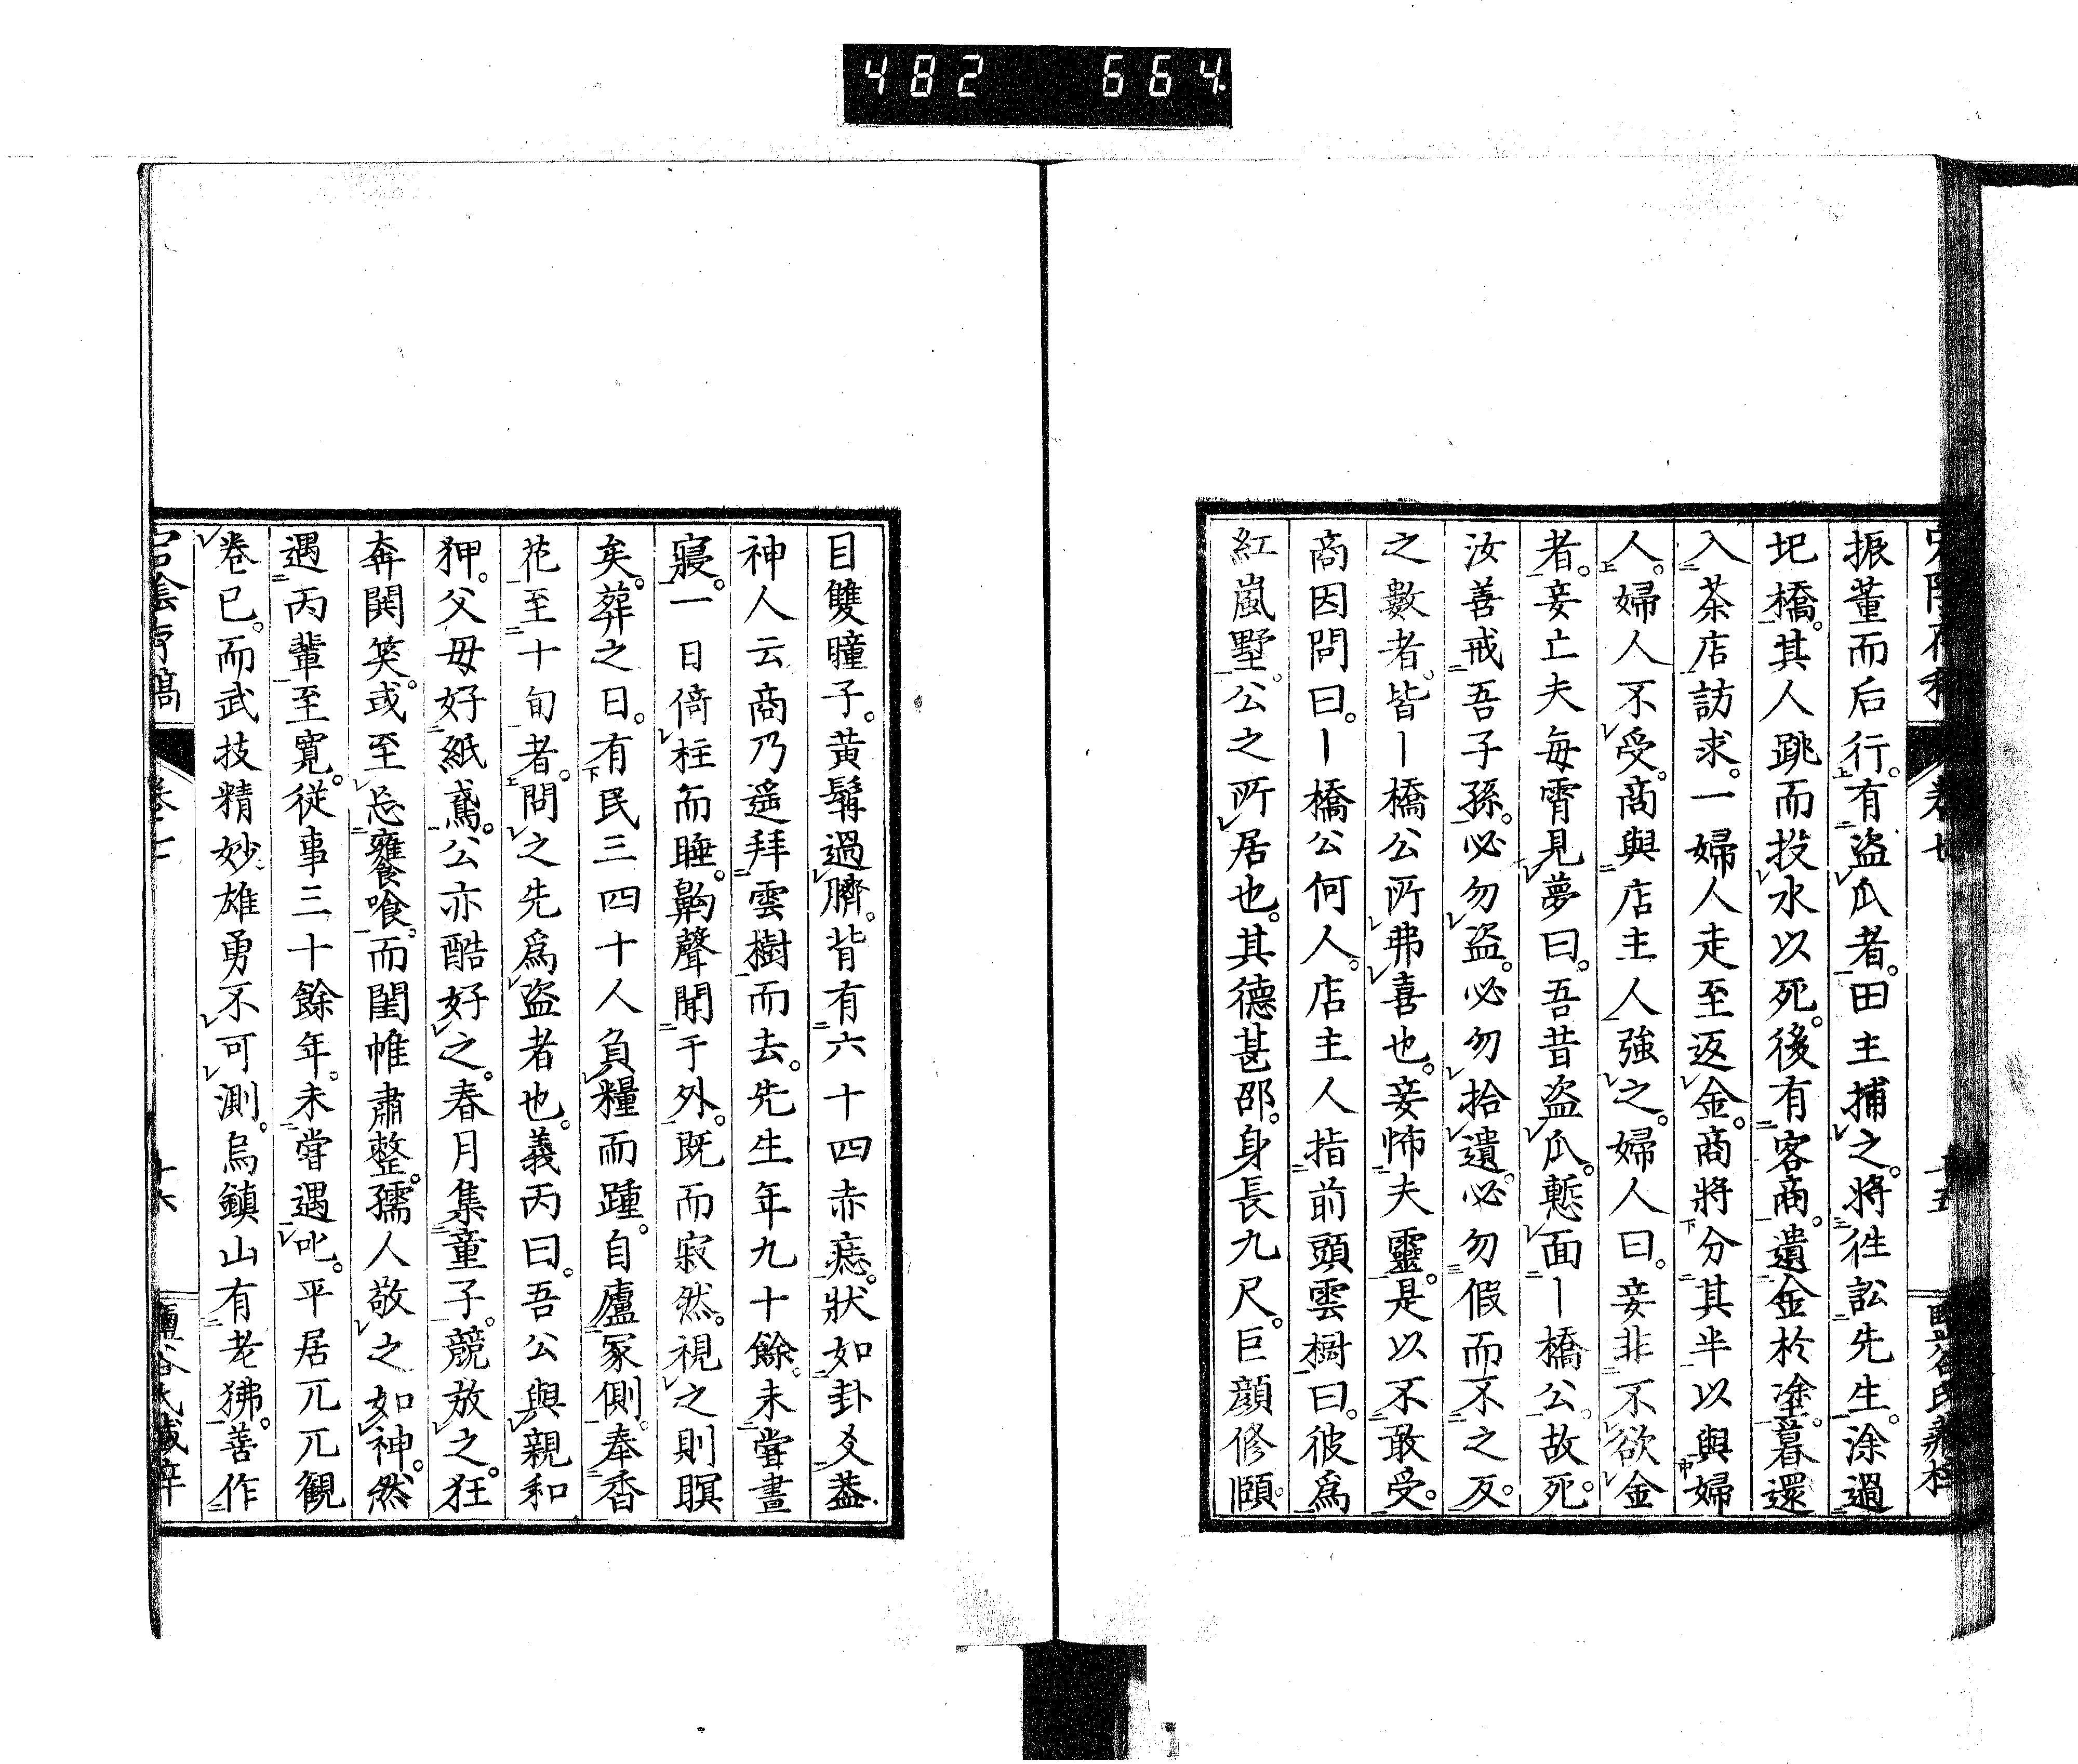 482 664
振董而后行。有盜瓜者。田主捕之。將徃訟先生。涂過
圯橋。其人跳而投水以死。後有客商。遺金於塗。暮還
入茶店訪求。一婦人走至返金。商將分其半以與婦
人。婦人不受。商與店主人強之。婦人曰。妾非不欲金
者。妾亡夫每霄見夢曰。吾昔盜瓜。慙面ー橋公。故死。
汝善戒吾子孫。必勿盜。必勿拾遺。必勿假而不之反。
之數者。皆ー橋公所弗喜也。妾怖夫靈。是以不敢受。
商因問曰。ー橋公何人。店主人指前頭雲樹曰。彼爲
紅嵐墅。公之所居也。其德甚邵。身長九尺。巨顔修頤。
目雙瞳子。黃髯過臍。背有六十四赤痣。狀如卦爻。葢
神人云商乃遥拜雲樹而去。先生年九十餘。未嘗晝
寢。一日倚柱而睡。齁聲聞于外。既而寂然。視之則瞑
矣。葬之日。有民三四十人負糧而踵。自廬冢側。奉香
花至十旬者。問之先爲盜者也。義丙曰。吾公與親和
狎。父母好紙鳶。公亦酷好之。春月集童子。競放之。狂
奔鬨笑。或至忘饔飧喰。而閨帷肅整。孺人敬之如神。然
遇丙輩至寬。從事三十餘年。未嘗遇叱。平居兀兀觀
卷已。而武技精妙。雄勇不可測。烏鎮山有老狒。善作
卷七